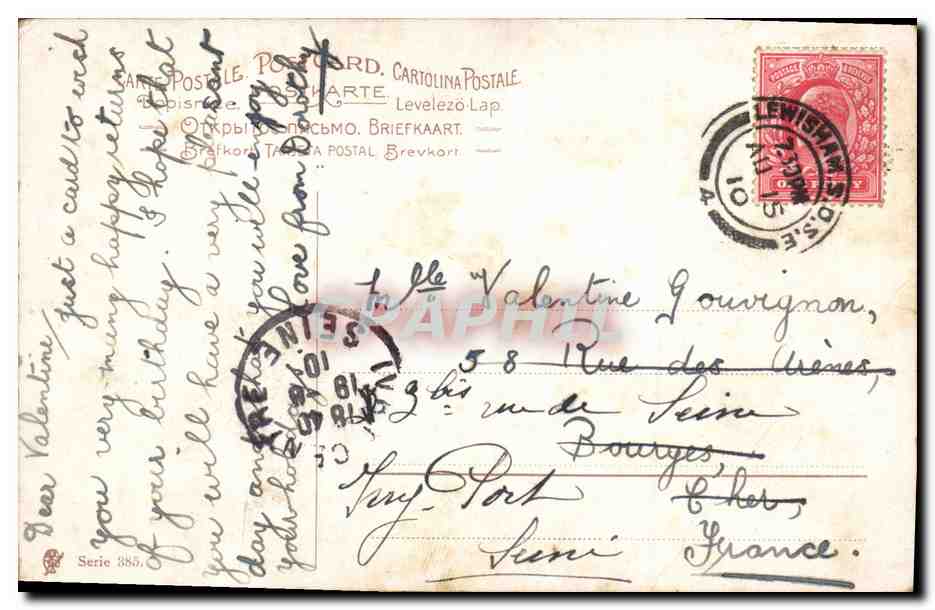 CARTE POSTALE. POSTCARD. CARTOLINA POSTALE.
Dopisnice. POSTKARTE. Levelező-Lap.
ОТКРЫТОЕ ПИСЬМО. BRIEFKAART.
Brefkort. TARJETA POSTAL. Brevkort.
POSTAGE REVENUE
ONE PENNY
LEWISHAM S.O.S.E.
7.30 PM
AU 15
10
4
Dear Valentine,
Just a card to wish
you very many happy returns
of your birthday. I hope that
you will have a very pleasant
day and that you will enjoy
your holidays. Love from Dorothy
Mlle Valentine Gouvignon,
58 Rue des Arènes,
3 bis rue de Seine
Bourges,
Ivry-Port
Cher,
Seine
France.
SEINE
18
10
Serie 385.
CPAPHIL